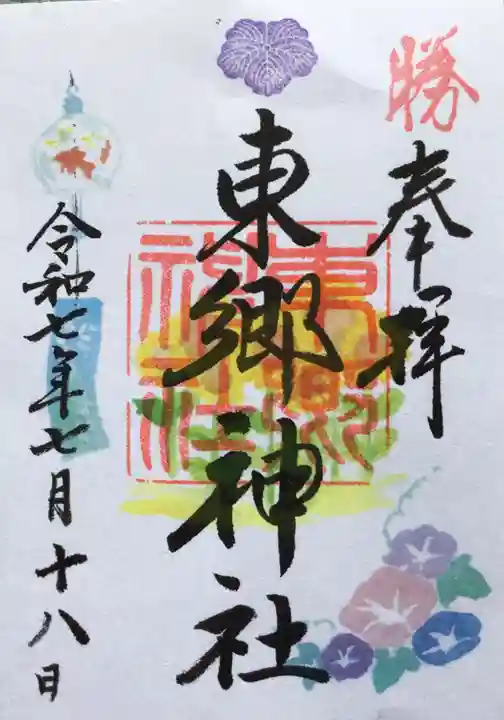 勝
奉拝
東郷神社
東郷神社
令和七年七月十八日